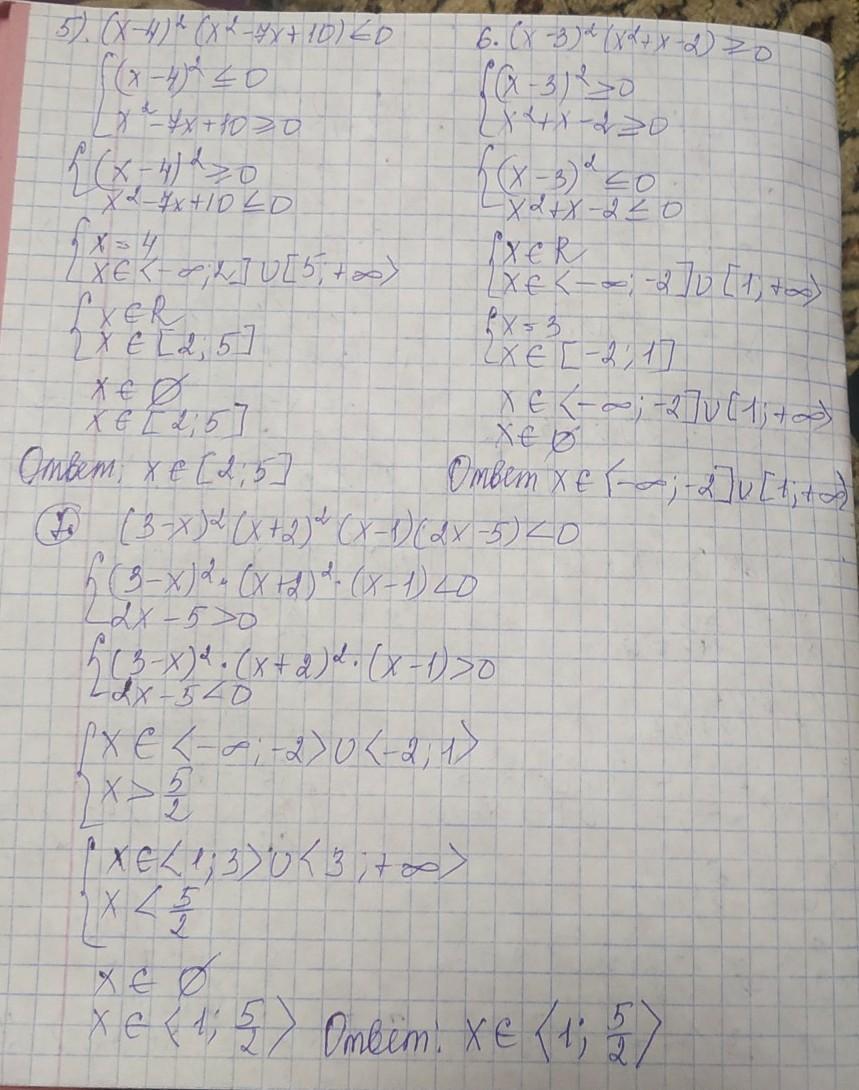 5). (x-4)² (x²-7x+10) ≤ 0
{(x-4)² ≤ 0
x²-7x+10 ≥ 0
{(x-4)² ≥ 0
x²-7x+10 ≤ 0
{x = 4
x ∈ <-∞; 2] ∪ [5; +∞>
{x ∈ R
x ∈ [2; 5]
x ∈ ∅
x ∈ [2; 5]
Ответ: x ∈ [2; 5]
6. (x-3)² (x²+x-2) ≥ 0
{(x-3)² ≥ 0
x²+x-2 ≥ 0
{(x-3)² ≤ 0
x²+x-2 ≤ 0
{x ∈ R
x ∈ <-∞; -2] ∪ [1; +∞>
{x = 3
x ∈ [-2; 1]
x ∈ <-∞; -2] ∪ [1; +∞>
x ∈ ∅
Ответ x ∈ <-∞; -2] ∪ [1; +∞>
7. (3-x)² (x+2)² (x-1)(2x-5) < 0
{(3-x)² · (x+2)² · (x-1) < 0
2x-5 > 0
{(3-x)² · (x+2)² · (x-1) > 0
2x-5 < 0
{x ∈ <-∞; -2> ∪ <-2; 1>
x > 5/2
{x ∈ <1; 3> ∪ <3; +∞>
x < 5/2
x ∈ ∅
x ∈ <1; 5/2> Ответ: x ∈ <1; 5/2>